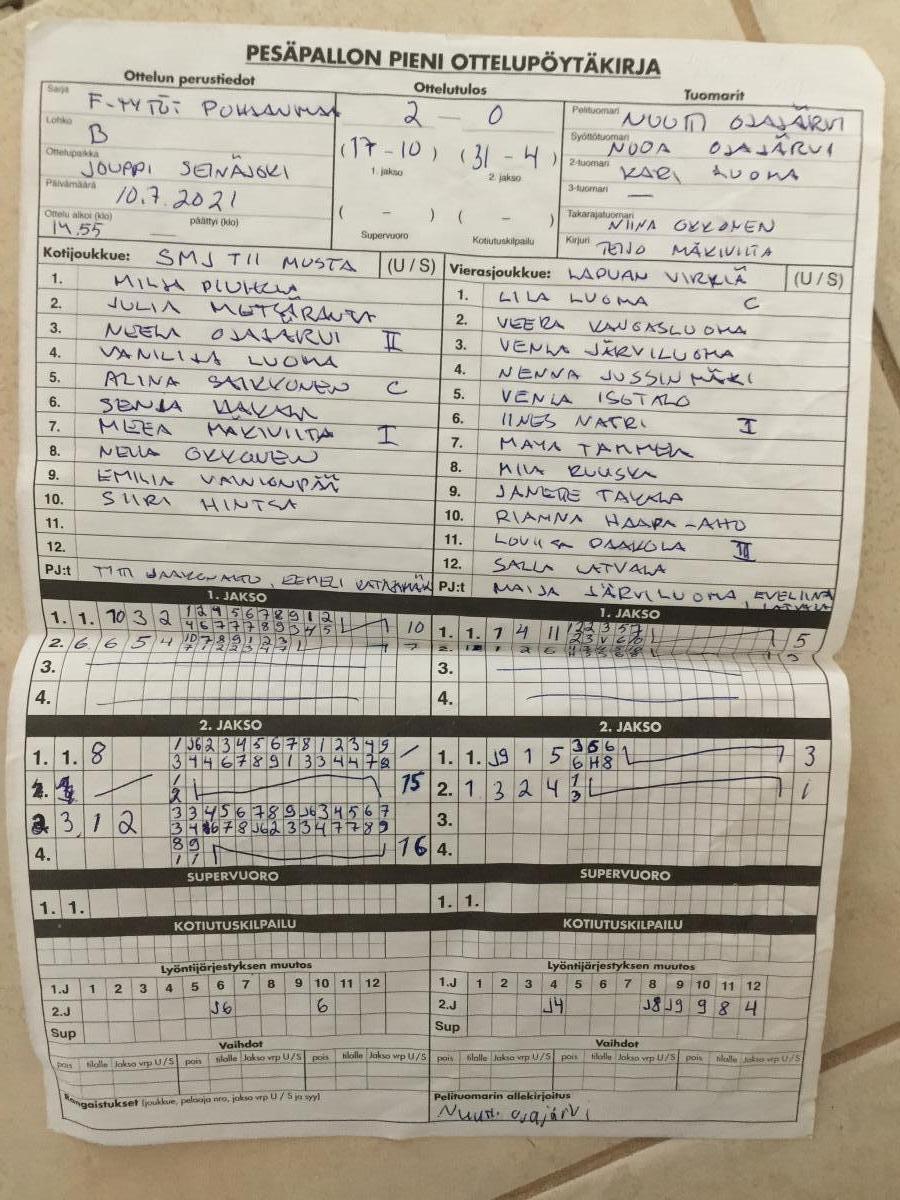 PESÄPALLON PIENI OTTELUPÖYTÄKIRJA
Ottelun perustiedot
Ottelutulos
Tuomarit
Sarja F-TYTÖT POHJANMAA
Lohko B
Ottelupaikka JOUPPI SEINÄJOKI
Päivämäärä 10.7.2021
Ottelu alkoi (klo) 14.55 päättyi (klo)
2 - 0
(17-10) (31-4)
1. jakso 2. jakso
( - ) ( - )
Supervuoro Kotiutuskilpailu
Pelituomari NUUTTI OJAJÄRVI
Syöttötuomari NOOA OJAJÄRVI
2-tuomari KARI LUOMA
3-tuomari —
Takarajatuomari NIINA OKKONEN
Kirjuri TEIJO MÄKIVIITA
Kotijoukkue: SMJ T11 MUSTA (U / S)
1. MILJA
2. JULIA METSÄRANTA
3. NEELA OJAJÄRVI II
4. VANILJA LUOMA
5. ALINA SAIKKONEN C
6. SENJA
7. MEEA MÄKIVIITA I
8. NELLA OKKONEN
9. EMILIA VAINIONPÄÄ
10. SIIRI HINTSA
11.
12.
PJ:t EEMELI
Vierasjoukkue: LAPUAN VIRKIÄ (U / S)
1. LILA LUOMA C
2. VEERA KANGASLUOMA
3. VENLA JÄRVILUOMA
4. NENNA JUSSINMÄKI
5. VENLA ISOTALO
6. IINES NATRI I
7. MAYA TAMMELA
8. MILA RUUSKA
9. JANETTE TAKALA
10. RIANNA HAAPA-AHO
11. LOVIISA DAAVOLA III
12. SALLA LATVALA
PJ:t MAIJA JÄRVILUOMA EVELIINA LATVALA
1. JAKSO
1. 1. 10 3 2
1 2 4 5 6 7 8 9 1 2
4 6 7 7 7 8 9 3 4 5
10
2. 6 6 5 4
3.
4.
1. JAKSO
1. 1. 7 4 11
5
3.
4.
2. JAKSO
1. 1. 8
1 J6 2 3 4 5 6 7 8 1 2 3 4 9
3 4 4 6 7 8 9 1 3 3 4 4 7 2
1
2
15
2. 3, 1 2
3 3 4 5 6 7 8 9 J6 3 4 5 6 7
8 9
1 1
4.
16
2. JAKSO
1. 1. J9 1 5
3 5 6
6 11 8
3
2. 1 3 2 4
1
3
1
3.
4.
SUPERVUORO
1. 1.
SUPERVUORO
1. 1.
KOTIUTUSKILPAILU
KOTIUTUSKILPAILU
Lyöntijärjestyksen muutos
1.J 1 2 3 4 5 6 7 8 9 10 11 12
2.J J6 6
Sup
Lyöntijärjestyksen muutos
1.J 1 2 3 4 5 6 7 8 9 10 11 12
2.J J4 J8 J9 9 8 4
Sup
Vaihdot
pois tilalle Jakso vrp U / S pois tilalle Jakso vrp U / S pois tilalle Jakso vrp U / S
Vaihdot
pois tilalle Jakso vrp U / S pois tilalle Jakso vrp U / S pois tilalle Jakso vrp U / S
Rangaistukset (joukkue, pelaaja nro, jakso vrp U / S ja syy)
Pelituomarin allekirjoitus
Nuutti Ojajärvi